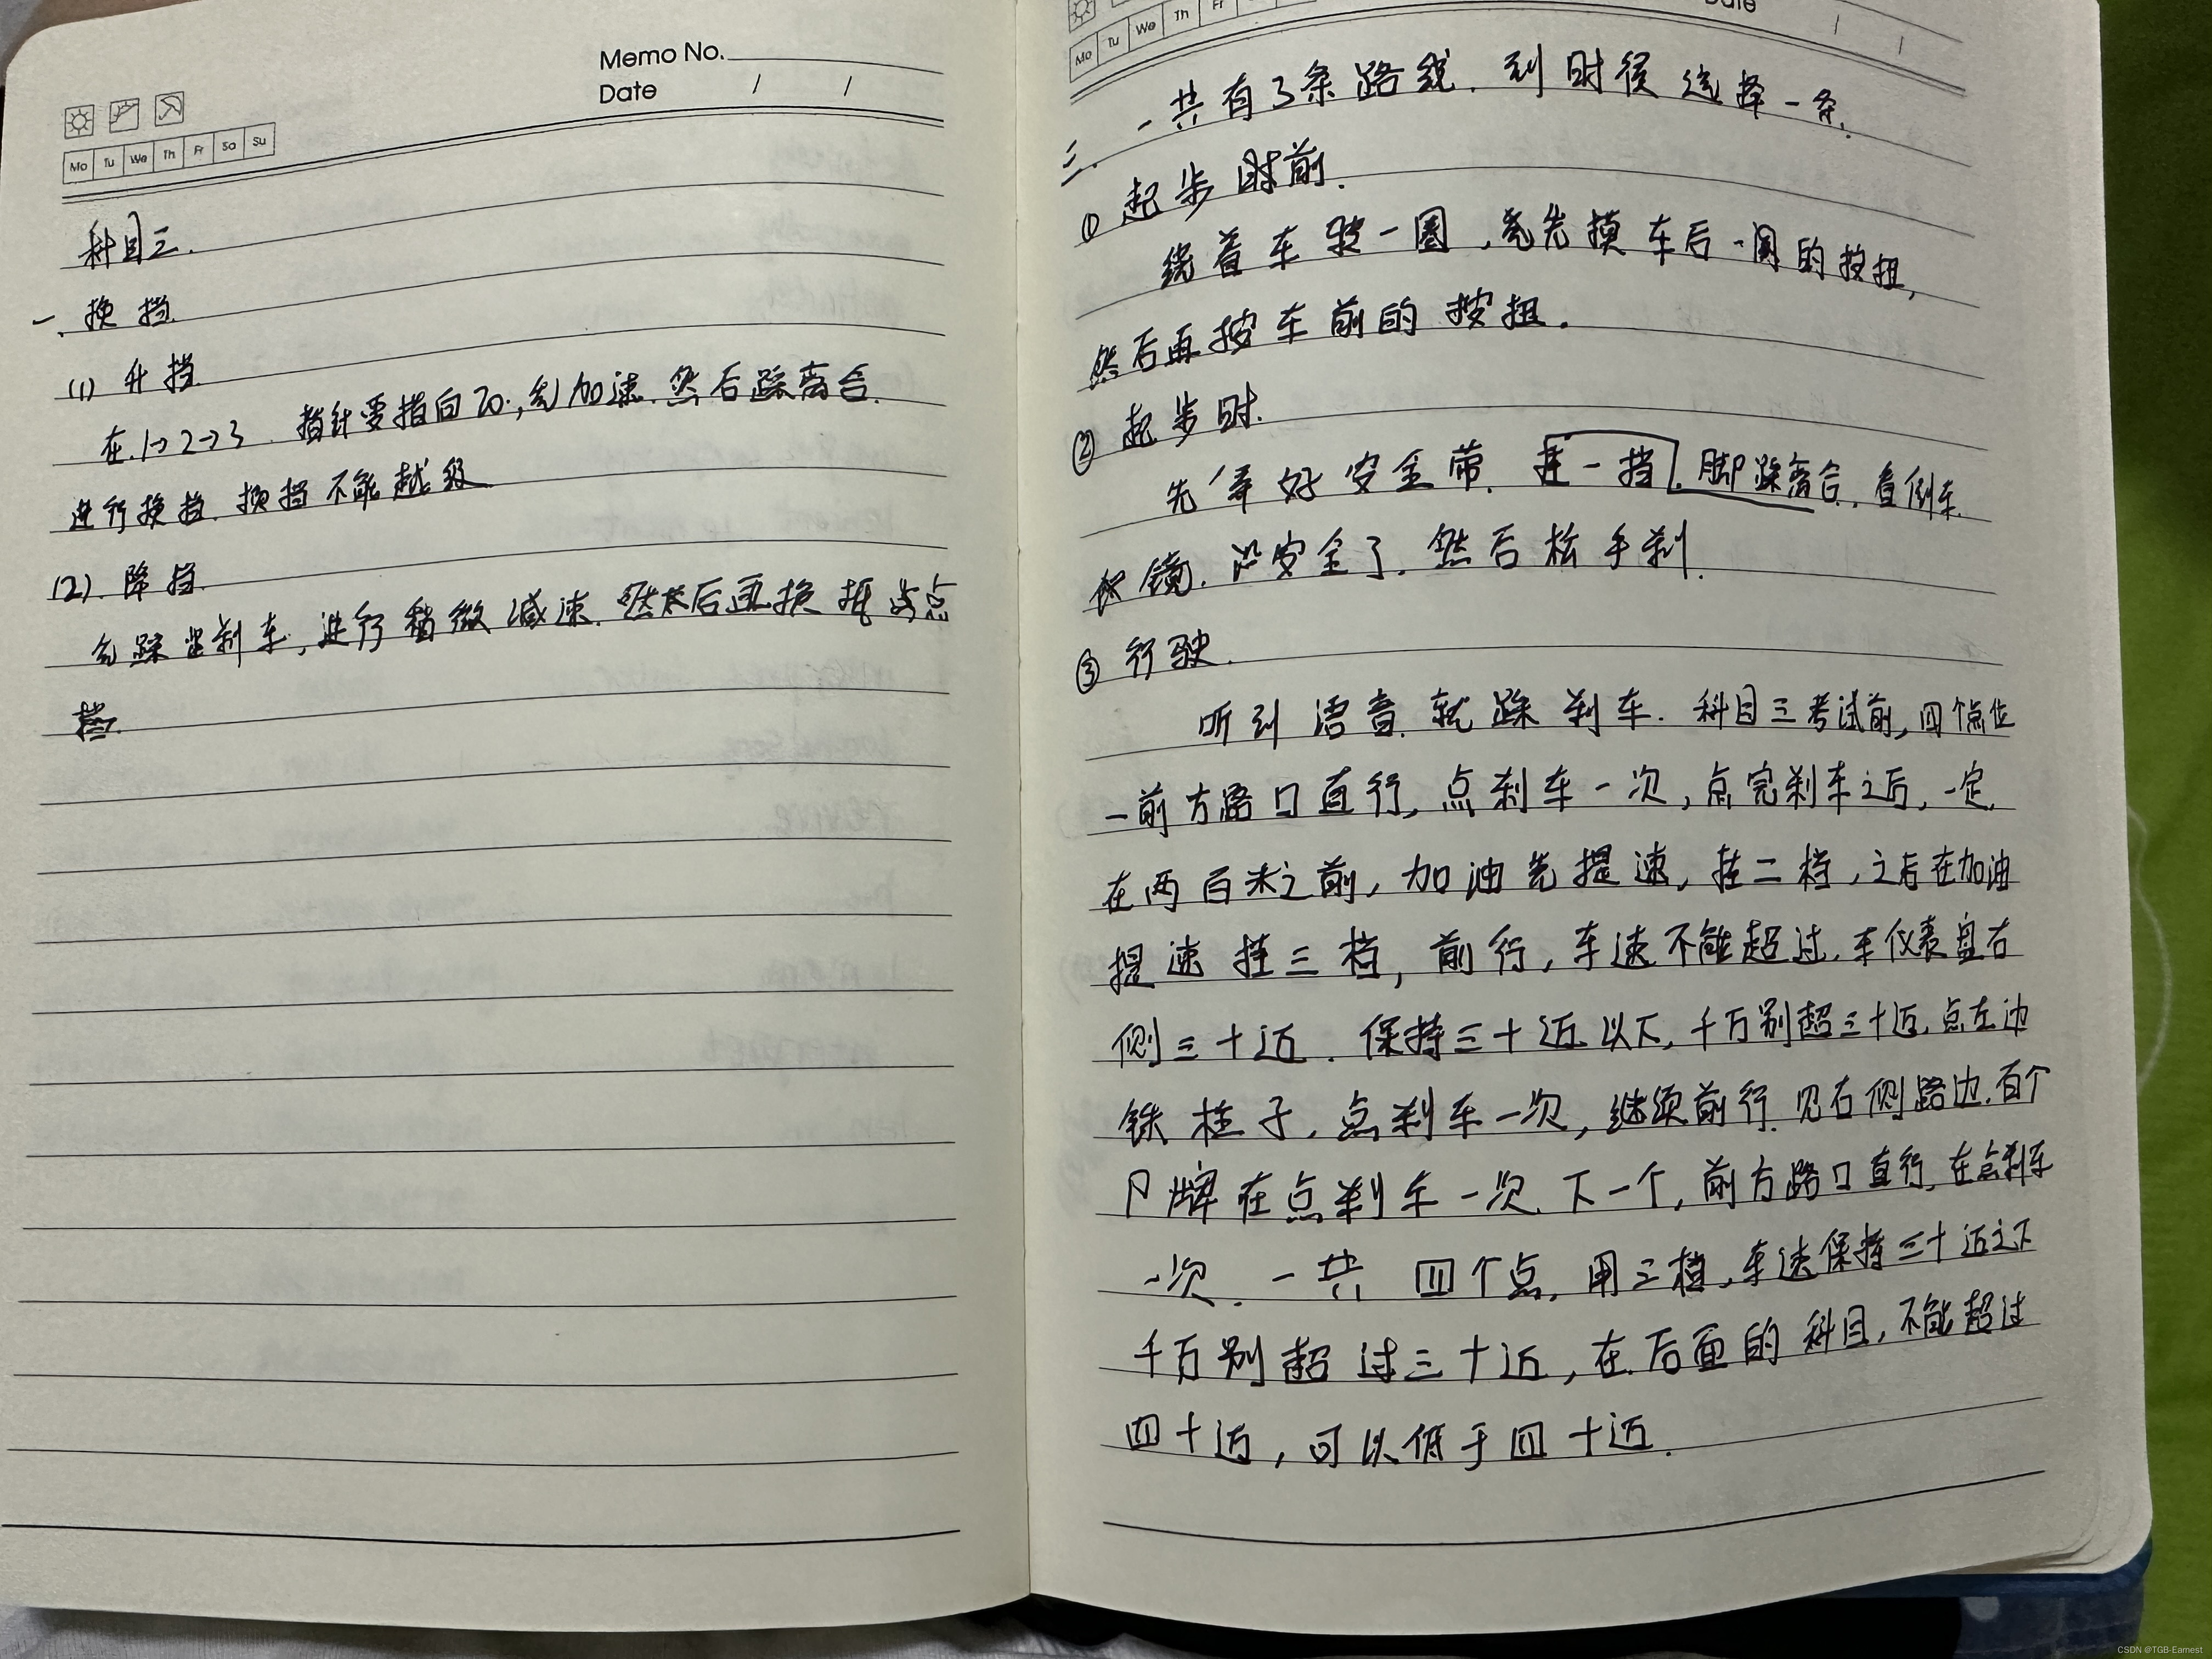 Memo No.
Date / /
Mo Tu We Th Fr Sa Su
科目三.
一、换挡
(1) 升挡
在1→2→3 指针要指向20,先加速.然后踩离合.
进行换挡.换挡不能越级
(2).降挡
先踩刹车,进行稍微减速.然后再换挡
挡.
Mo Tu We Th Fr
Date / /
一共有3条路线.到时候选择一条.
二.
① 起步时前.
绕着车转一圈,先摸车后一圈的按扭,
然后再按车前的按扭.
② 起步时.
先弄好安全带.挂一挡.脚踩离合.看倒车
镜.安全了.然后松手刹.
③ 行驶.
听到语音就踩刹车.科目三考试前,四个点位
一前方路口直行,点刹车一次,点完刹车之后,一定
在两百米之前,加油先提速,挂二档,之后在加油
提速挂三档,前行,车速不能超过.车仪表盘右
侧三十迈.保持三十迈以下,千万别超三十迈.点左边
铁柱子.点刹车一次,继续前行.见右侧路边.有个
P牌在点刹车一次.下一个,前方路口直行.在点刹车
一次.一共四个点.用三档,车速保持三十迈之下
千万别超过三十迈,在后面的科目,不能超过
四十迈,可以低于四十迈.
CSDN @TGB-Earnest